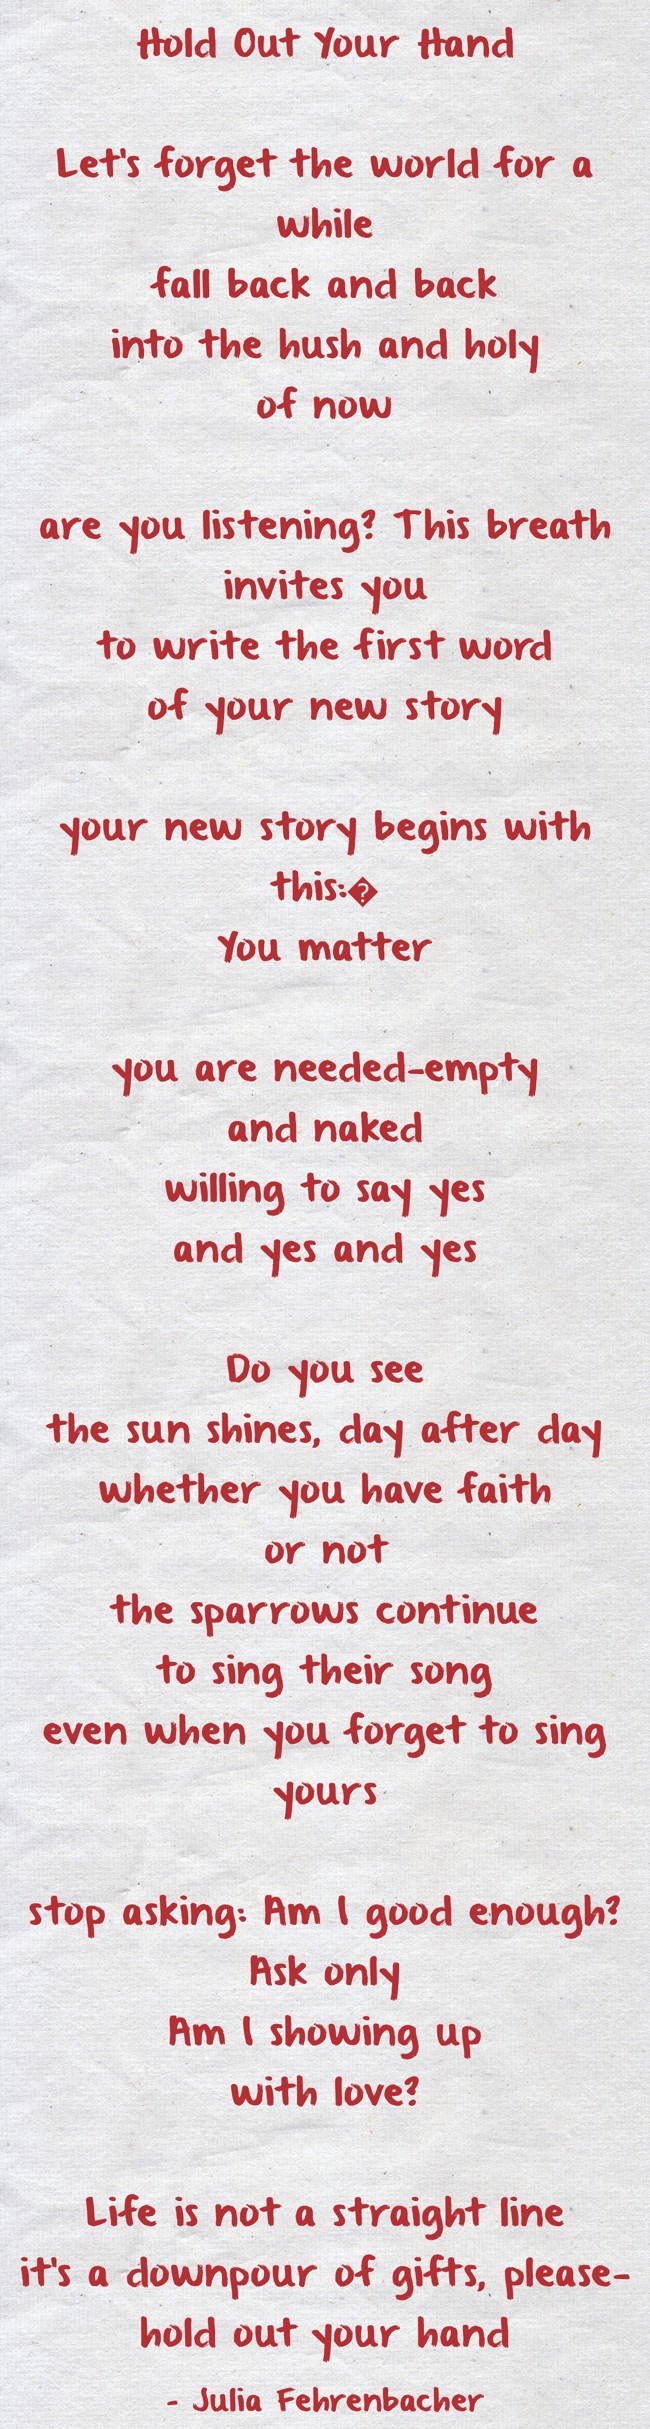 Hold Out Your Hand
Let's forget the world for a
while
fall back and back
into the hush and holy
of now
are you listening? This breath
invites you
to write the first word
of your new story
your new story begins with
this:�
You matter
you are needed-empty
and naked
willing to say yes
and yes and yes
Do you see
the sun shines, day after day
whether you have faith
or not
the sparrows continue
to sing their song
even when you forget to sing
yours
stop asking: Am I good enough?
Ask only
Am I showing up
with love?
Life is not a straight line
it's a downpour of gifts, please-
hold out your hand
- Julia Fehrenbacher